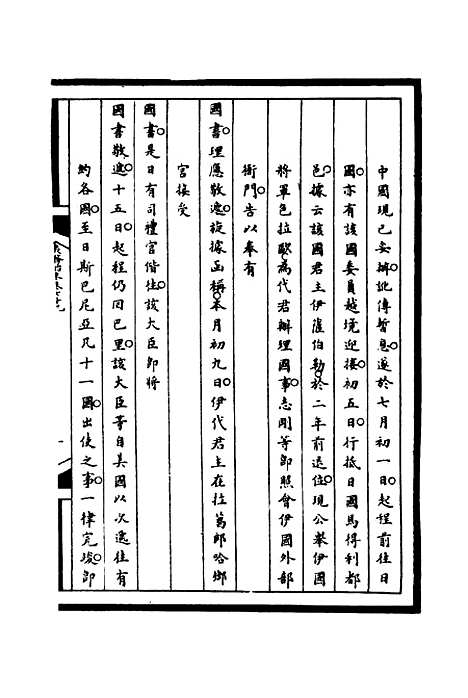 中國現已妥辦訛傳暫息遂於七月初一日起程前往日
國亦有該國委員越境迎接初五日行抵日國馬得利都
邑據云該國君主伊薩伯勒於二年前退位現公舉伊國
將軍色拉歐為代君辦理國事志剛等卽照會伊國外部
衙門告以奉有
國書理應敬遞旋據函稱本月初九日伊代君主在拉葛郎哈鄉
宮接受
國書是日有司禮官偕往該大臣卽將
國書敬遞十五日起程仍回巴里該大臣等自美國以次遞往有
約各國至日斯巴尼亞凡十一國出使之事一律完竣卽